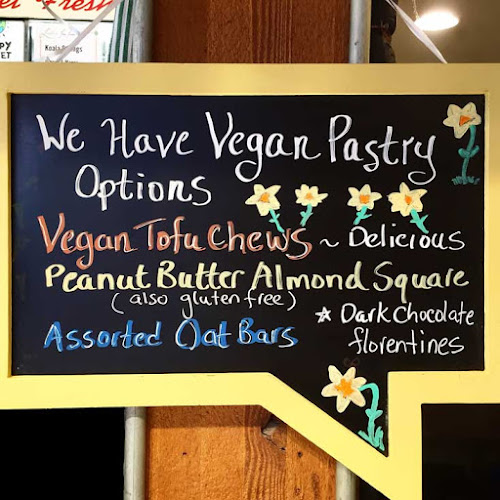 We Have Vegan Pastry
Options
Vegan Tofu Chews ~ Delicious
Peanut Butter Almond Square
(also gluten free)
* Dark Chocolate
florentines
Assorted Oat Bars